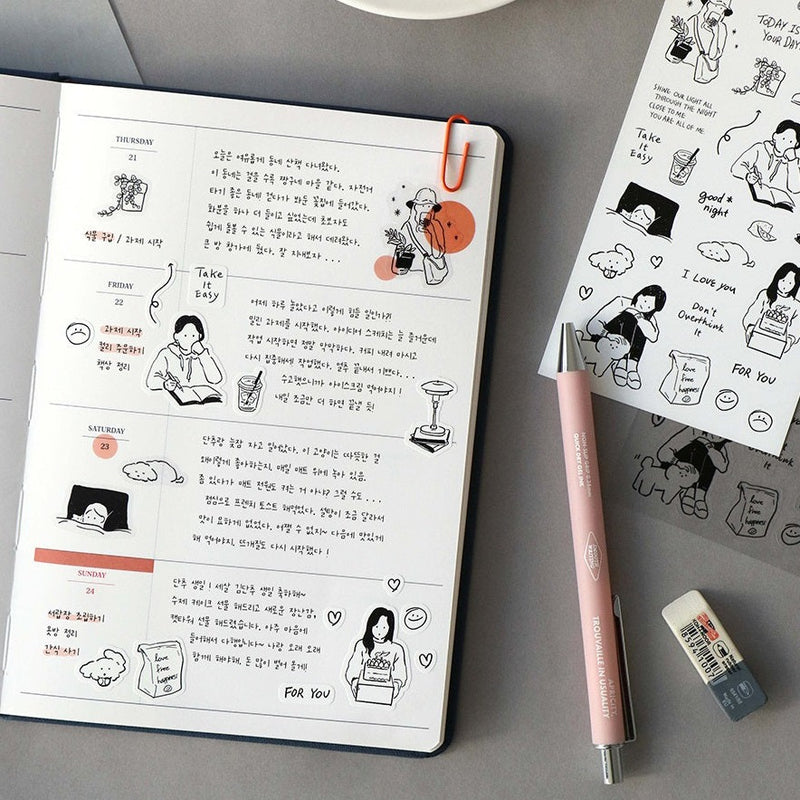 THURSDAY
21
식물 구입 / 과제 시작
오늘은 여유롭게 동네 산책 다녀왔다.
이 동네는 걸을 수록 짱구네 마을 같다. 자전거
타기 좋은 동네! 걷다가 봐둔 꽃집에 들어갔다.
화분을 하나 더 들이고 싶었는데 초보자도
쉽게 돌볼 수 있는 식물이라고 해서 데려왔다.
큰 방 창가에 뒀다. 잘 지내보자...
FRIDAY
22
과제 시작
컬러 주문하기
책상 정리
Take
It
Easy
어제 하루 놀았다고 이렇게 힘든 일인가?!
밀린 과제를 시작했다. 아이디어 스케치는 늘 즐거운데
작업 시작하면 정말 막막하다. 커피 내려 마시고
다시 집중해서 작업했다. 얼추 끝내서 기쁘다...
수고했으니까 아이스크림 먹어야지!
내일 조금만 더 하면 끝낼 듯!
SATURDAY
23
단추랑 늦잠 자고 일어났다. 이 고양이는 따뜻한 걸
왜이렇게 좋아하는지. 매일 매트 위에 녹아 있음.
좀 있다가 매트 전원도 켜는 거 아냐? 그럴 수도...
점심으로 프렌치 토스트 해먹었다. 설탕이 조금 달라서
맛이 묘하게 없었다. 어쩔 수 없지~ 다음에 맛있게
해 먹어야지. 뜨개질도 다시 시작했다!
SUNDAY
24
서랍장 조립하기
옷방 정리
간식 사기
love
free
happness
단추 생일! 세상 김단추 생일 축하해~
수제 케이크 선물 해드리고 새로운 장난감,
캣타워 선물 해드렸습니다. 아주 마음에
들어해서 다행입니다~ 나랑 오래 오래
함께 해야해. 돈 많이 벌어 올게!
FOR YOU
TODAY IS
YOUR DAY
SHINE OUR LIGHT ALL
THROUGH THE NIGHT
CLOSE TO ME
YOU ARE ALL OF ME
Take
It
Easy
good*
night
I LOVE YOU
Don't
Overthink
It
love
free
happness
FOR YOU
love
free
happness
NON-SLIP GRIP 0.38mm
QUICK DRY GEL INK
SMOOTH
WRITING
TROUVAILLE IN USUALITY
APRICITY